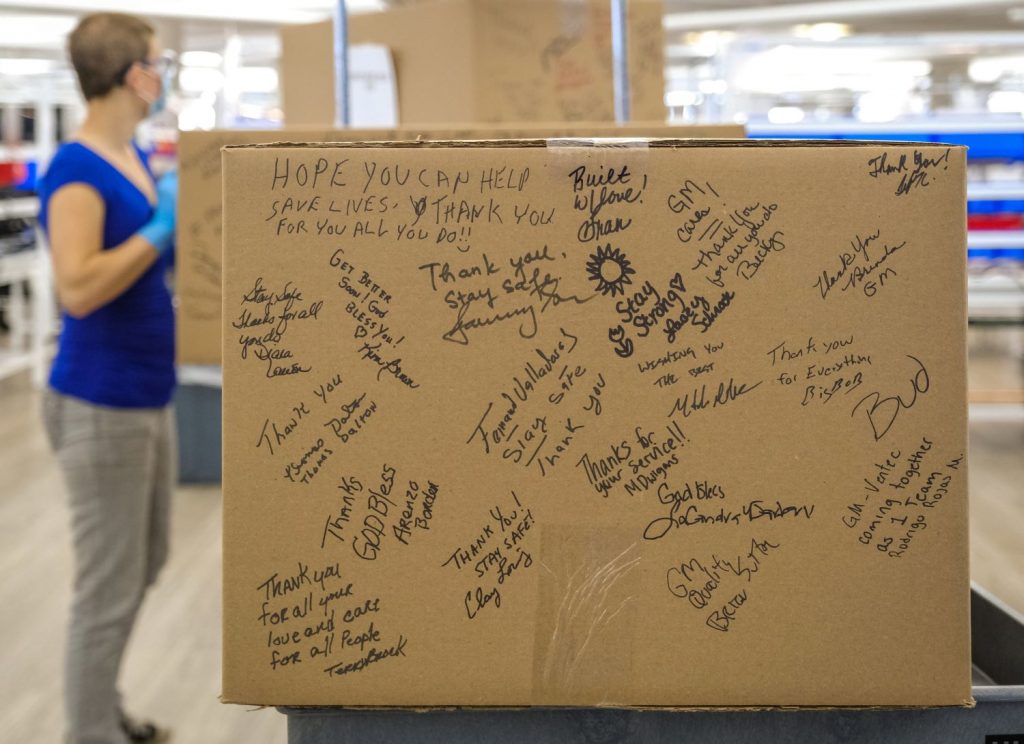 HOPE YOU CAN HELP
SAVE LIVES. THANK YOU
FOR YOU ALL YOU DO!!
Built
w/love!
GM
Cares!
Thank You
for all you do
Becky
Thank You!
Thank You
Brenda
GM
GET BETTER
Soon! God
BLESS YOU!
Thank you,
Stay safe
Stay
Strong
Stay Safe
Thanks for all
you do
Diana
WISHING YOU
THE BEST
Thank you
for Everything
BigBoB
Bud
Fernand Valladares
Stay Safe
Thank you
Thank You
Thomas
Dalton
Thanks for
your service!!
M Dwigans
Thanks
GOD Bless
Arenzo
God bless
THANK YOU!
STAY SAFE!
Clay
GM-Ventec
coming together
as 1 Team
Rodrigo Rojas M.
GM
Quality
Sutton
THANK you
for all your
love and care
for all People
Terry Brock